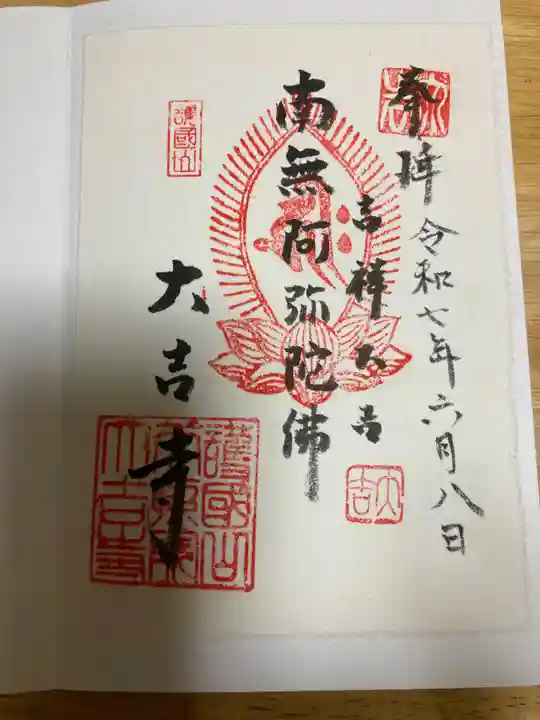 奉拝 令和七年六月八日
吉祥大吉
南無阿弥陀佛
大吉寺
護國山
大吉